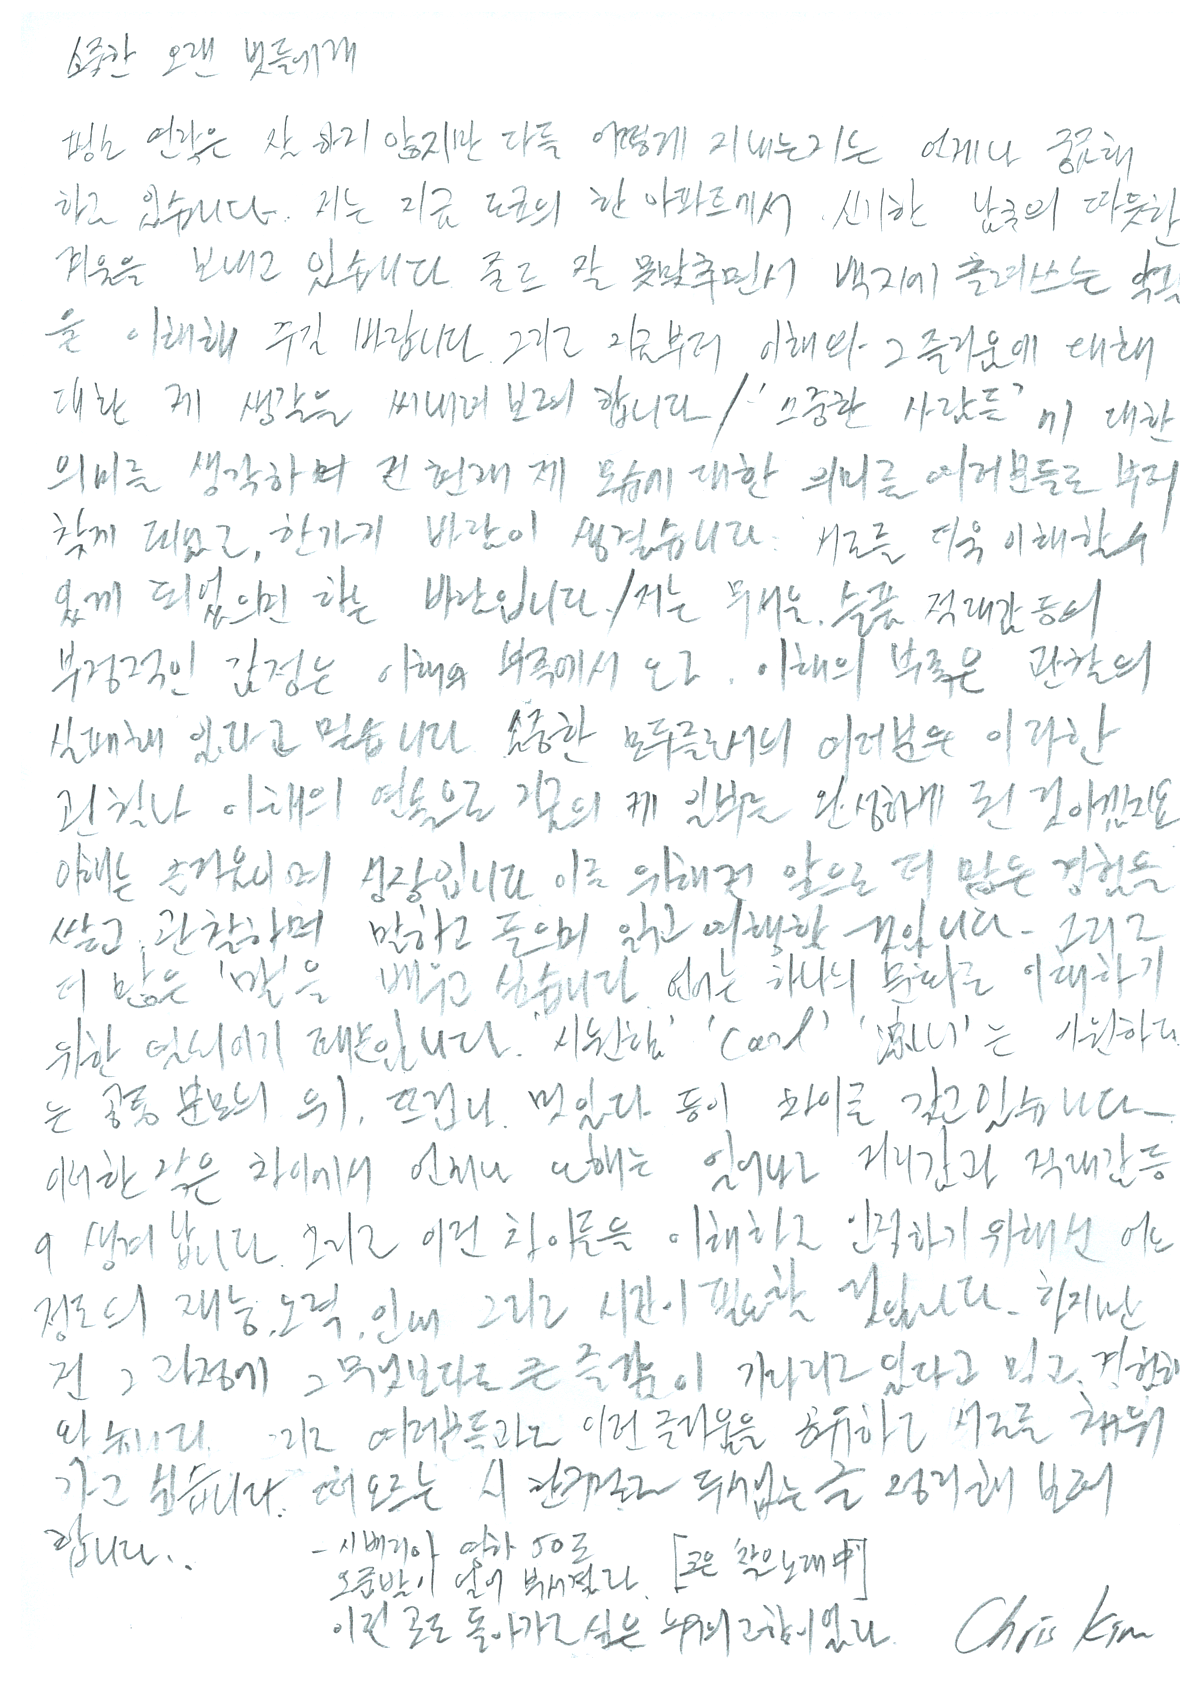 소중한 오랜 벗들에게
평소 연락은 잘 하지 않지만 다들 어떻게 지내는지는 언제나 궁금해
하고 있습니다. 저는 지금 도쿄의 한 아파트에서 신기한 남국의 따뜻한
겨울을 보내고 있습니다. 줄도 잘 못맞추면서 백지에 흘려쓰는 악필
을 이해해 주길 바랍니다. 그리고 지금부터 이해와 그 즐거움에 대해
대한 제 생각을 써내려 보려 합니다 / '소중한 사람들' 에 대한
의미를 생각하며 전 현재 제 모습에 대한 의미를 여러분들로 부터
찾게 되었고, 한가지 바람이 생겼습니다. 서로를 더욱 이해할 수
있게 되었으면 하는 바람입니다. / 저는 무서움, 슬픔, 적대감 등의
부정적인 감정은 이해의 부족에서 오고, 이해의 부족은 관찰의
실패에 있다고 믿습니다. 소중한 여러분은 이러한
관찰과 이해의 연속으로 지금의 제 일부를 완성하게 된 것이겠지요
이해는 즐거움이며 성장입니다 이를 위해 전 앞으로 더 많은 경험들
쌓고, 관찰하며 말하고 들으며 읽고 여행할 것입니다. 그리고
더 많은 '말'을 배우고 싶습니다. 언어는 하나의 문화를 이해하기
위한 열쇠이기 때문입니다. '시원함' 'Cool' '涼しい'는 시원하다
는 공통 분모의 위에, 뜨겁다, 멋있다 등의 차이를 갖고 있습니다.
이러한 작은 차이에서 언제나 오해는 일어나고 거리감과 적대감 등
이 생겨납니다. 그리고 이런 차이들을 이해하고 인식하기 위해선 어느
정도의 재능, 노력, 인내 그리고 시간이 필요할 것입니다. 하지만
전 그 과정에 그 무엇보다도 큰 즐거움이 기다리고 있다고 믿고, 경험해
왔습니다. 그리고 여러분들과도 이런 즐거움을 공유하고 서로를 채워
가고 싶습니다. 떠오르는 시 한구절로 두서없는 글 정리해 보려
합니다..
- 시베리아 영하 50도
오줌발이 얼어 부서졌다. [고은 '작은 노래' 中]
이런 곳도 돌아가고 싶은 누구의 고향이었다.
Chris Kim